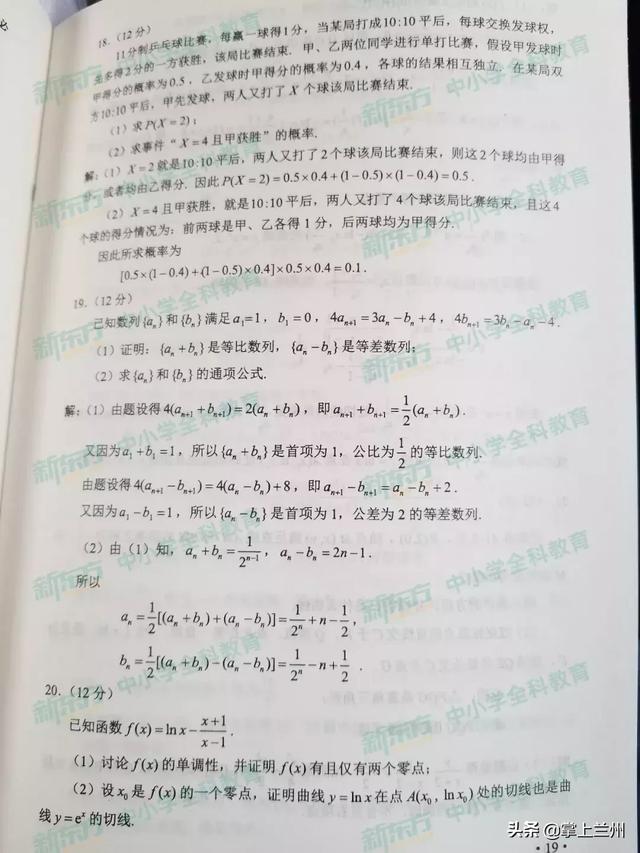 18.（12分）
11分制乒乓球比赛，每赢一球得1分，当某局打成10:10平后，每球交换发球权，
先多得2分的一方获胜，该局比赛结束．甲、乙两位同学进行单打比赛，假设甲发球时
甲得分的概率为0.5，乙发球时甲得分的概率为0.4，各球的结果相互独立．在某局双
方10:10平后，甲先发球，两人又打了X个球该局比赛结束．
（1）求P(X=2)；
（2）求事件“X=4且甲获胜”的概率．
解：（1）X=2就是10:10平后，两人又打了2个球该局比赛结束，则这2个球均由甲得
分，或者均由乙得分．因此P(X=2)=0.5×0.4+(1-0.5)×(1-0.4)=0.5．
（2）X=4且甲获胜，就是10:10平后，两人又打了4个球该局比赛结束，且这4
个球的得分情况为：前两球是甲、乙各得1分，后两球均为甲得分．
因此所求概率为
[0.5×(1-0.4)+(1-0.5)×0.4]×0.5×0.4=0.1．
19.（12分）
已知数列{aₙ}和{bₙ}满足a₁=1，b₁=0，4aₙ₊₁=3aₙ-bₙ+4，4bₙ₊₁=3bₙ-aₙ-4．
（1）证明：{aₙ+bₙ}是等比数列，{aₙ-bₙ}是等差数列；
（2）求{aₙ}和{bₙ}的通项公式．
解：（1）由题设得4(aₙ₊₁+bₙ₊₁)=2(aₙ+bₙ)，即aₙ₊₁+bₙ₊₁=1/2(aₙ+bₙ)．
又因为a₁+b₁=1，所以{aₙ+bₙ}是首项为1，公比为1/2的等比数列．
由题设得4(aₙ₊₁-bₙ₊₁)=4(aₙ-bₙ)+8，即aₙ₊₁-bₙ₊₁=aₙ-bₙ+2．
又因为a₁-b₁=1，所以{aₙ-bₙ}是首项为1，公差为2的等差数列．
（2）由（1）知，aₙ+bₙ=1/2ⁿ⁻¹，aₙ-bₙ=2n-1．
所以
aₙ=1/2[(aₙ+bₙ)+(aₙ-bₙ)]=1/2ⁿ+n-1/2，
bₙ=1/2[(aₙ+bₙ)-(aₙ-bₙ)]=1/2ⁿ-n+1/2．
20.（12分）
已知函数f(x)=lnx-(x+1)/(x-1)．
（1）讨论f(x)的单调性，并证明f(x)有且仅有两个零点；
（2）设x₀是f(x)的一个零点，证明曲线y=lnx在点A(x₀, lnx₀)处的切线也是曲
线y=eˣ的切线．
·19·
新东方 中小学全科教育
头条@掌上兰州